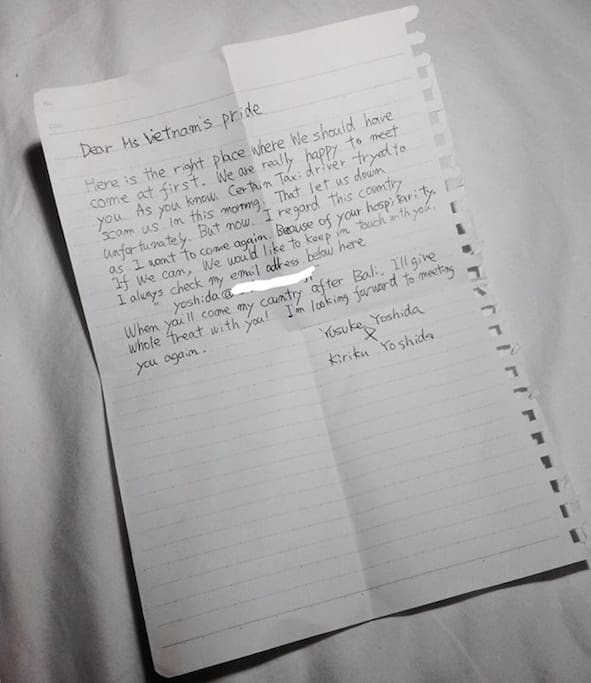 Dear Ms Vietnam's pride
Here is the right place where We should have
come at first. We are really happy to meet
you. As you know. Certain Taxi driver tryed to
scam us in this morning. That let us down
unfortunately. But now. I regard this country
as I want to come again. Because of your hospitarity.
If we can, We would like to keep in touch with you.
I always check my email adress below here
yoshida@
When you'll come my country after Bali. I'll give
whole treat with you! I'm looking forward to meeting
you again.
Yusuke Yoshida
&
Kiriku Yoshida